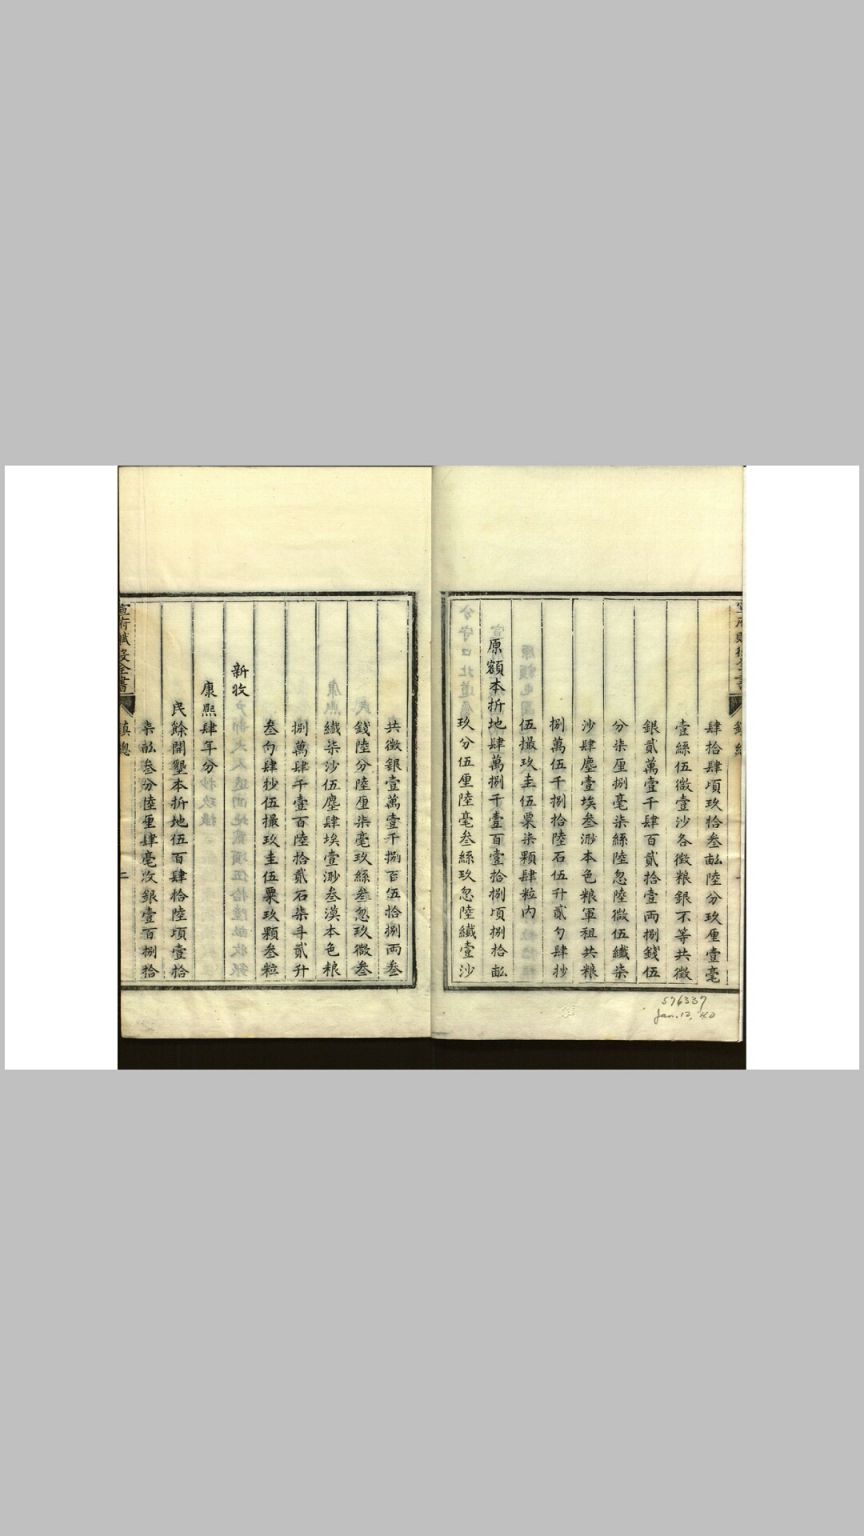 肆拾肆頃玖拾叁畝陸分玖厘壹毫
壹絲伍微壹沙各徵粮銀不等共徵
銀貳萬壹千肆百貳拾壹兩捌錢伍
分柒厘捌毫柒絲陸忽陸微伍纖柒
沙肆塵壹埃叁渺本色粮軍租共粮
捌萬伍千捌拾陸石伍升貳勺肆抄
伍撮玖圭伍粟柒顆肆粒内
原額本折地肆萬捌千壹百壹拾捌頃捌拾畝
玖分伍厘陸毫叁絲玖忽陸纖壹沙
576337
Jan. 12, '40
共徵銀壹萬壹千捌百伍拾捌兩叁
錢陸分陸厘柒毫玖絲叁忽玖微叁
纖柒沙伍塵肆埃壹渺叁漠本色粮
捌萬肆千壹百陸拾貳石柒斗貳升
叁勺肆抄伍撮玖圭伍粟玖顆叁粒
新收
康熙肆年分
民餘開墾本折地伍百肆拾陸頃壹拾
柒畝叁分陸厘肆毫徵銀壹百捌拾
宣府賦役全書
鎮總
二